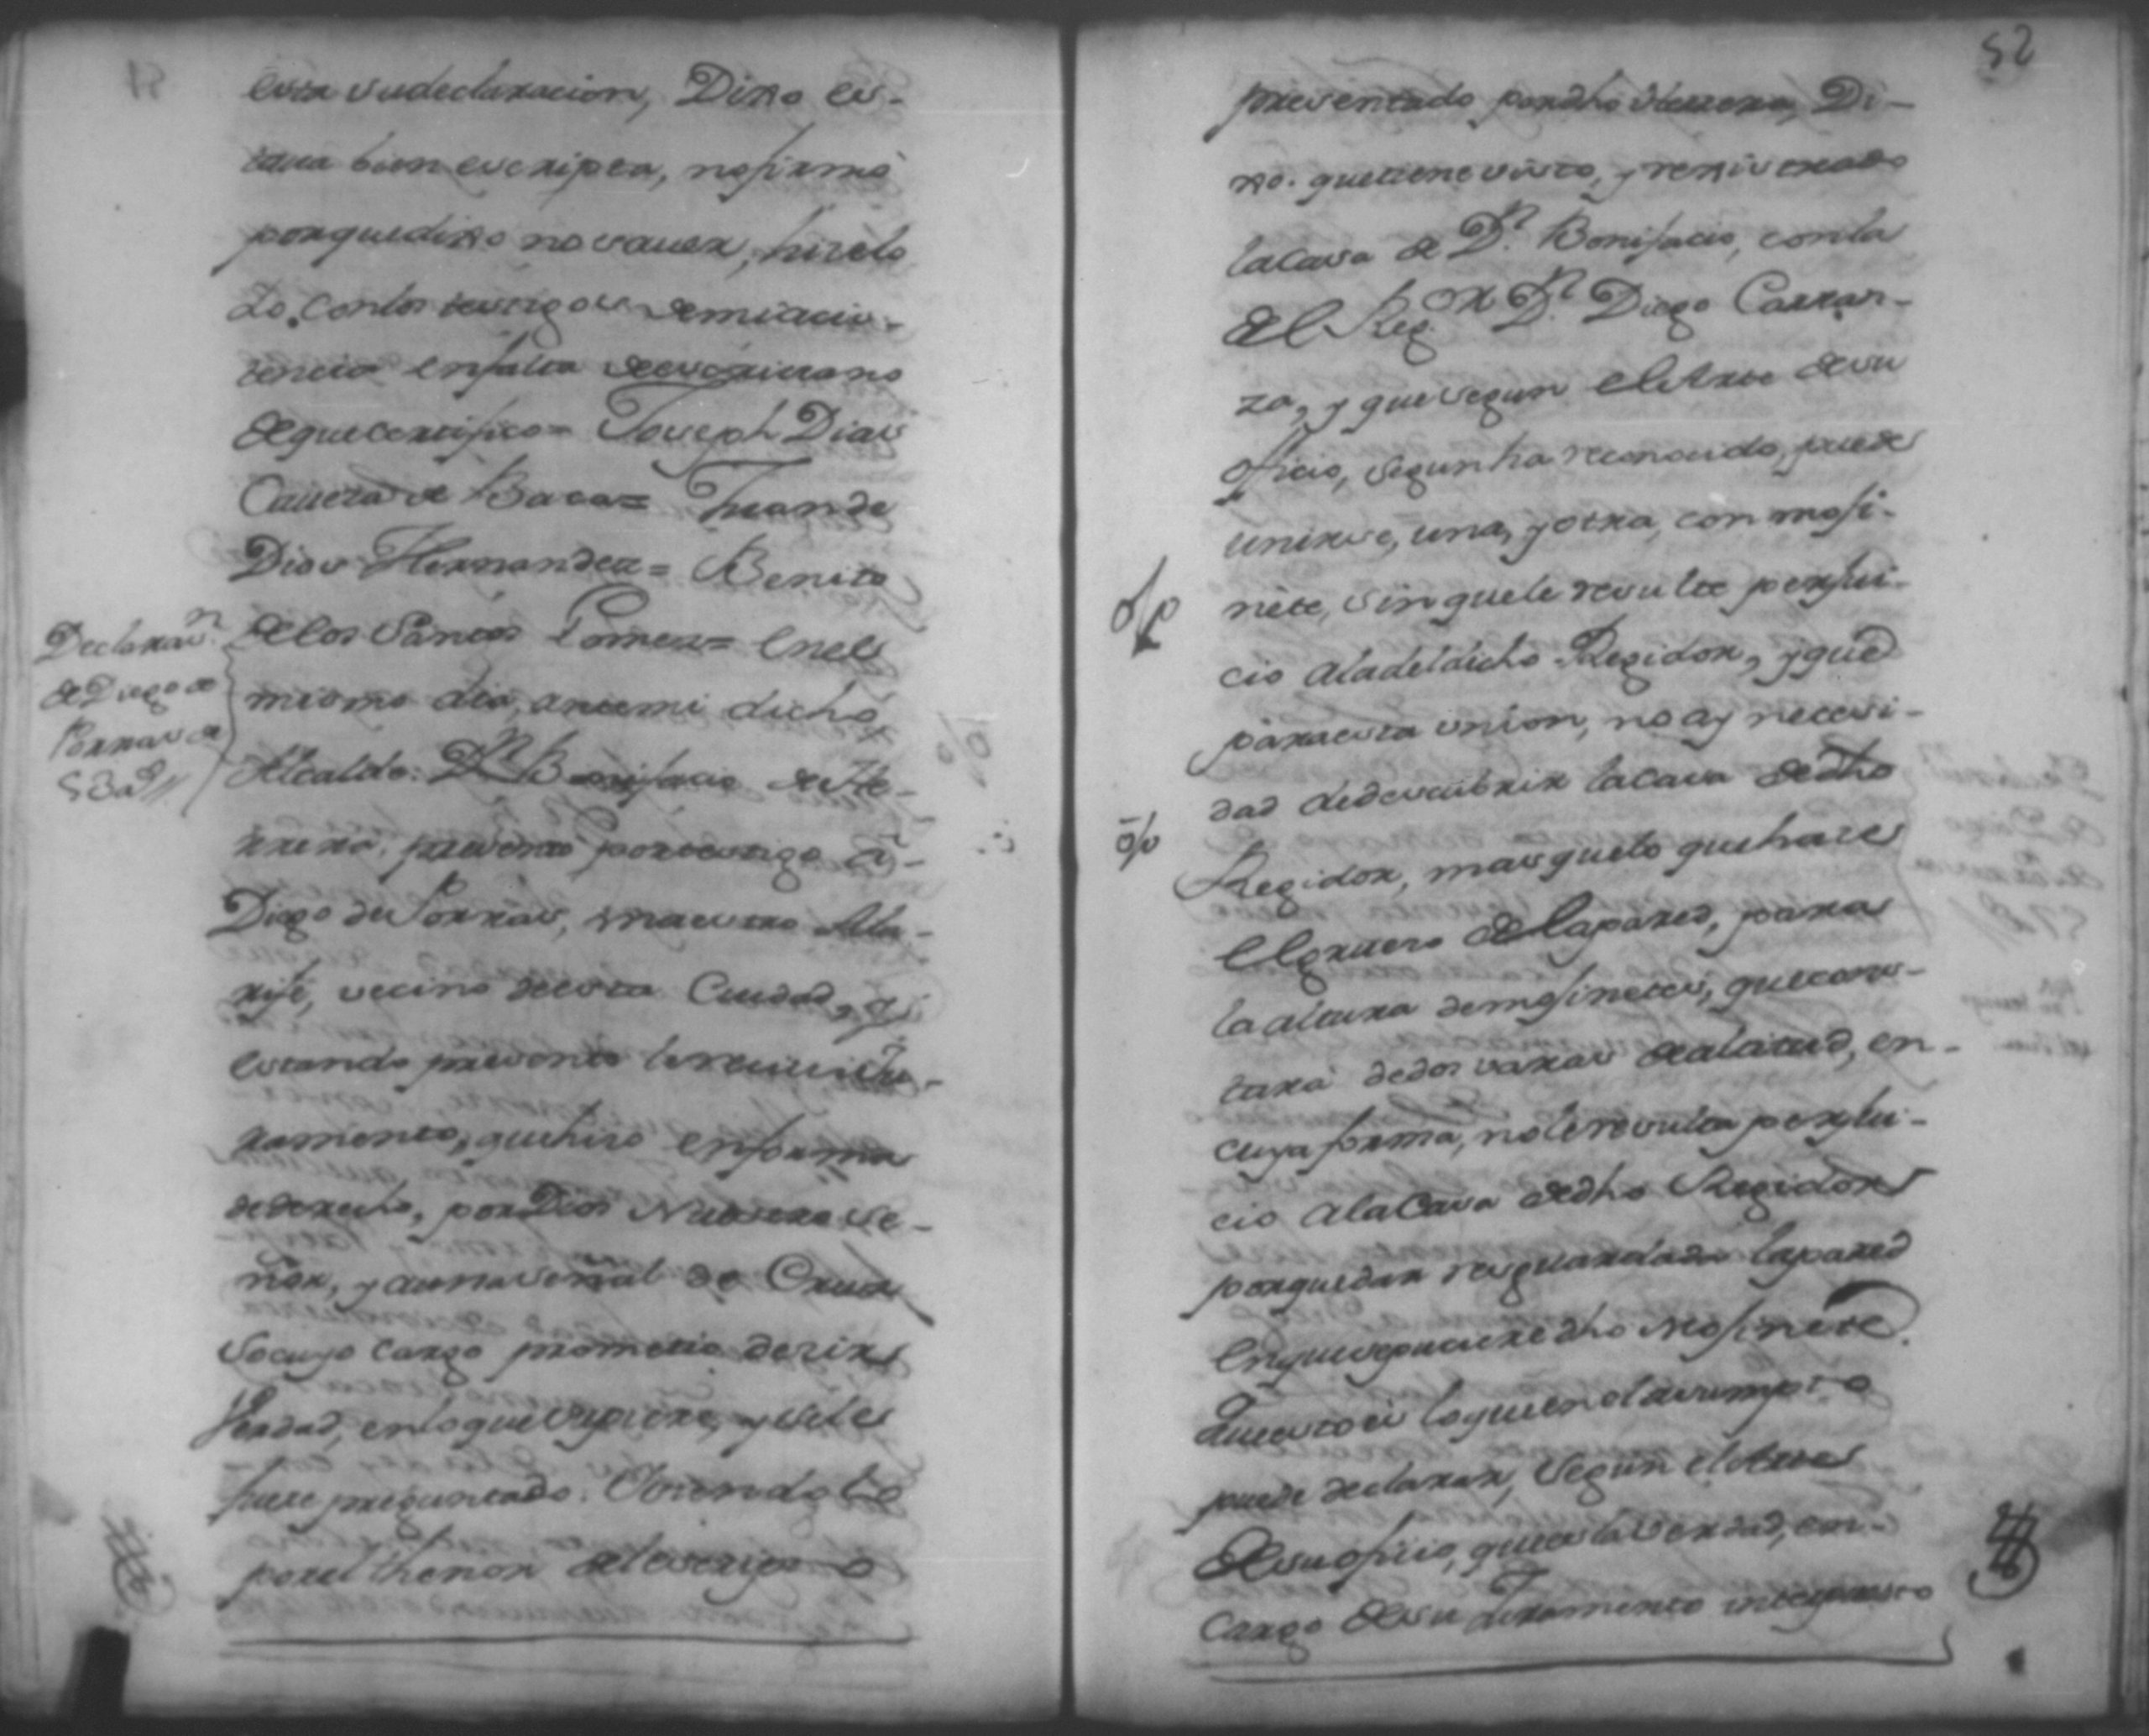 51
esta su declaracion, Dixo es-
taua bien escripta, no firmó
porque dixo no sauer, hizelo
Yo. Con los testigos de mi acis-
tencia en falta de escriuano
de que certifico = Joseph Dias
Caueza de Baca = Juan de
Dios Hernandez = Benito
Declaraⁿ
de Diego de
Porras de
53 aˢ //
de los Santos Gomez = En el
mismo dia, ante mi dicho
Alcalde: Dⁿ Bonifacio de He-
rrera, presentó por testigo á
Diego de Porras, maestro Ala-
rife, vecino de esta Ciudad, q̃
estando presente le reciui Ju-
ramento, que hizo en forma
de derecho, por Dios Nuestro Se-
ñor, y a una señal de Cruz
so cuyo cargo prometio dezir
Verdad, en lo que supiere, y se le
fuere preguntado. Y siendolo
por el thenor del escripto
52
presentado por dho Herrera, Di-
xo. que tiene visto, y rexistrado
la casa de Dⁿ Bonifacio, con la
del Reg.ᵒʳ Dⁿ Diego Carran-
za, y que segun el Arte de su
oficio, segun ha reconocido, puede
unirse, una, y otra, con mofi-
nete, sin que le resulte perjui-
cio a la del dicho Regidor, y que
para esta union, no ay necesi-
dad de descubrir la casa de dho
Regidor, mas que lo que haze
el grueso de la pared, para
la altura de mofinetes, que cons-
tará de dos varas de alatitud, en
cuya forma, no le resulta perjui-
cio a la Casa de dho Regidor
por quedar resguardada la pared
en que se pusiere dho Mofinete.
Que esto es lo que en el asumpto
puede declarar, segun el Arte
de su oficio, que es la verdad, en
cargo de su Juramento interpuesto